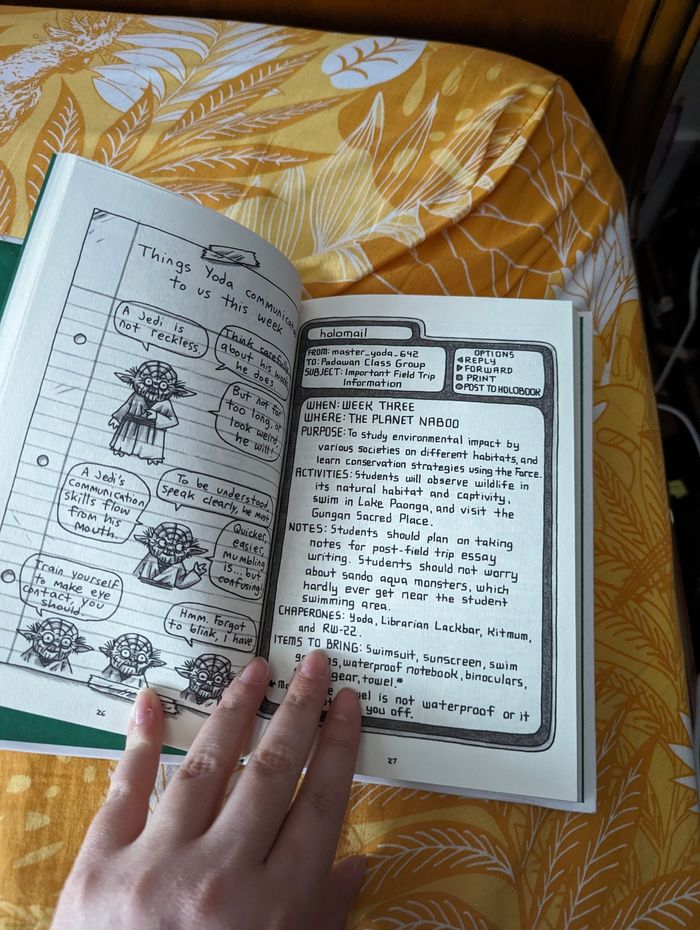 Things Yoda
to us this week
A Jedi is
not reckless.
Think
about his words
he does.
But not for
too long, or
look weird,
he will!
A Jedi's
communication
skills flow
from his
mouth.
To be understood,
speak clearly, he must.
Quicker,
easier,
mumbling
is... but
confusing!
Train yourself
to make eye
contact, you
should.
Hmm. Forgot
to blink, I have
26
holomail
FROM: master_yoda_642
TO: Padawan Class Group
SUBJECT: Important Field Trip
Information
OPTIONS
REPLY
FORWARD
PRINT
POST TO HOLOBOOK
WHEN: WEEK THREE
WHERE: THE PLANET NABOO
PURPOSE: To study environmental impact by
various societies on different habitats, and
learn conservation strategies using the Force.
ACTIVITIES: Students will observe wildlife in
its natural habitat and captivity,
swim in Lake Paonga, and visit the
Gungan Sacred Place.
NOTES: Students should plan on taking
notes for post-field trip essay
writing. Students should not worry
about sando aqua monsters, which
hardly ever get near the student
swimming area.
CHAPERONES: Yoda, Librarian Lackbar, Kitmum,
and RW-22.
ITEMS TO BRING: Swimsuit, sunscreen, swim
waterproof notebook, binoculars,
gear, towel.*
is not waterproof or it
you off.
27